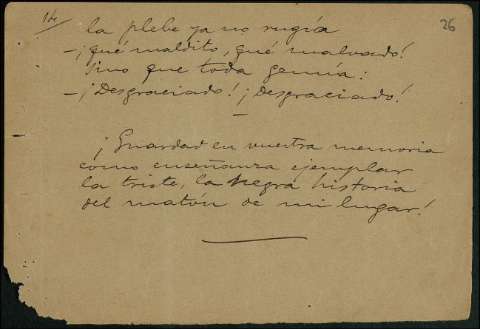 14
26
la plebe ya no rugía
—¡qué maldito, qué malvado!
sino que toda gemía:
—¡Desgraciado! ¡Desgraciado!
—
¡Guardad en vuestra memoria
como enseñanza ejemplar
la triste, la negra historia
del matón de mi lugar!